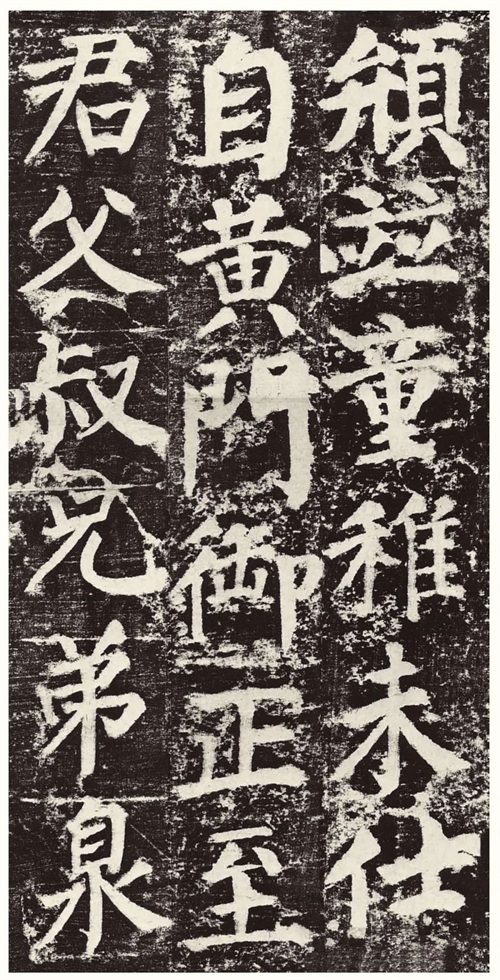 並童稚未仕
自黄門御正至
君父叔兄弟泉